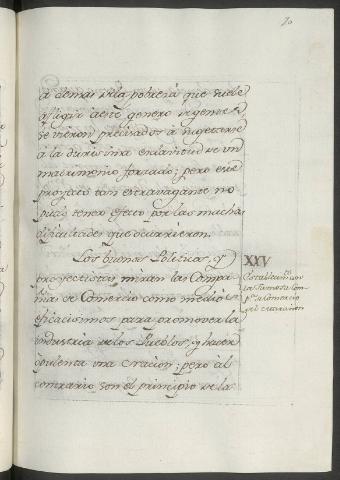 70
à demas de la pobreza que suele
afligir à este genero de gentes,
se vieron precisados à sugetarse
à la durissima esclavitud de un
matrimonio forzado; pero este
proyecto tan extravagante no
pudo tener efecto por las muchas
dificultades que ocurrieron.
Los buenos Politicos, y
proyectistas miran las Compa-
ñias de Comercio como medios
eficacissimos para promover la
industria de los Pueblos, y hacer
opulenta una Nacion; pero al
contrario son el principio de la
XXV
la famosa Com